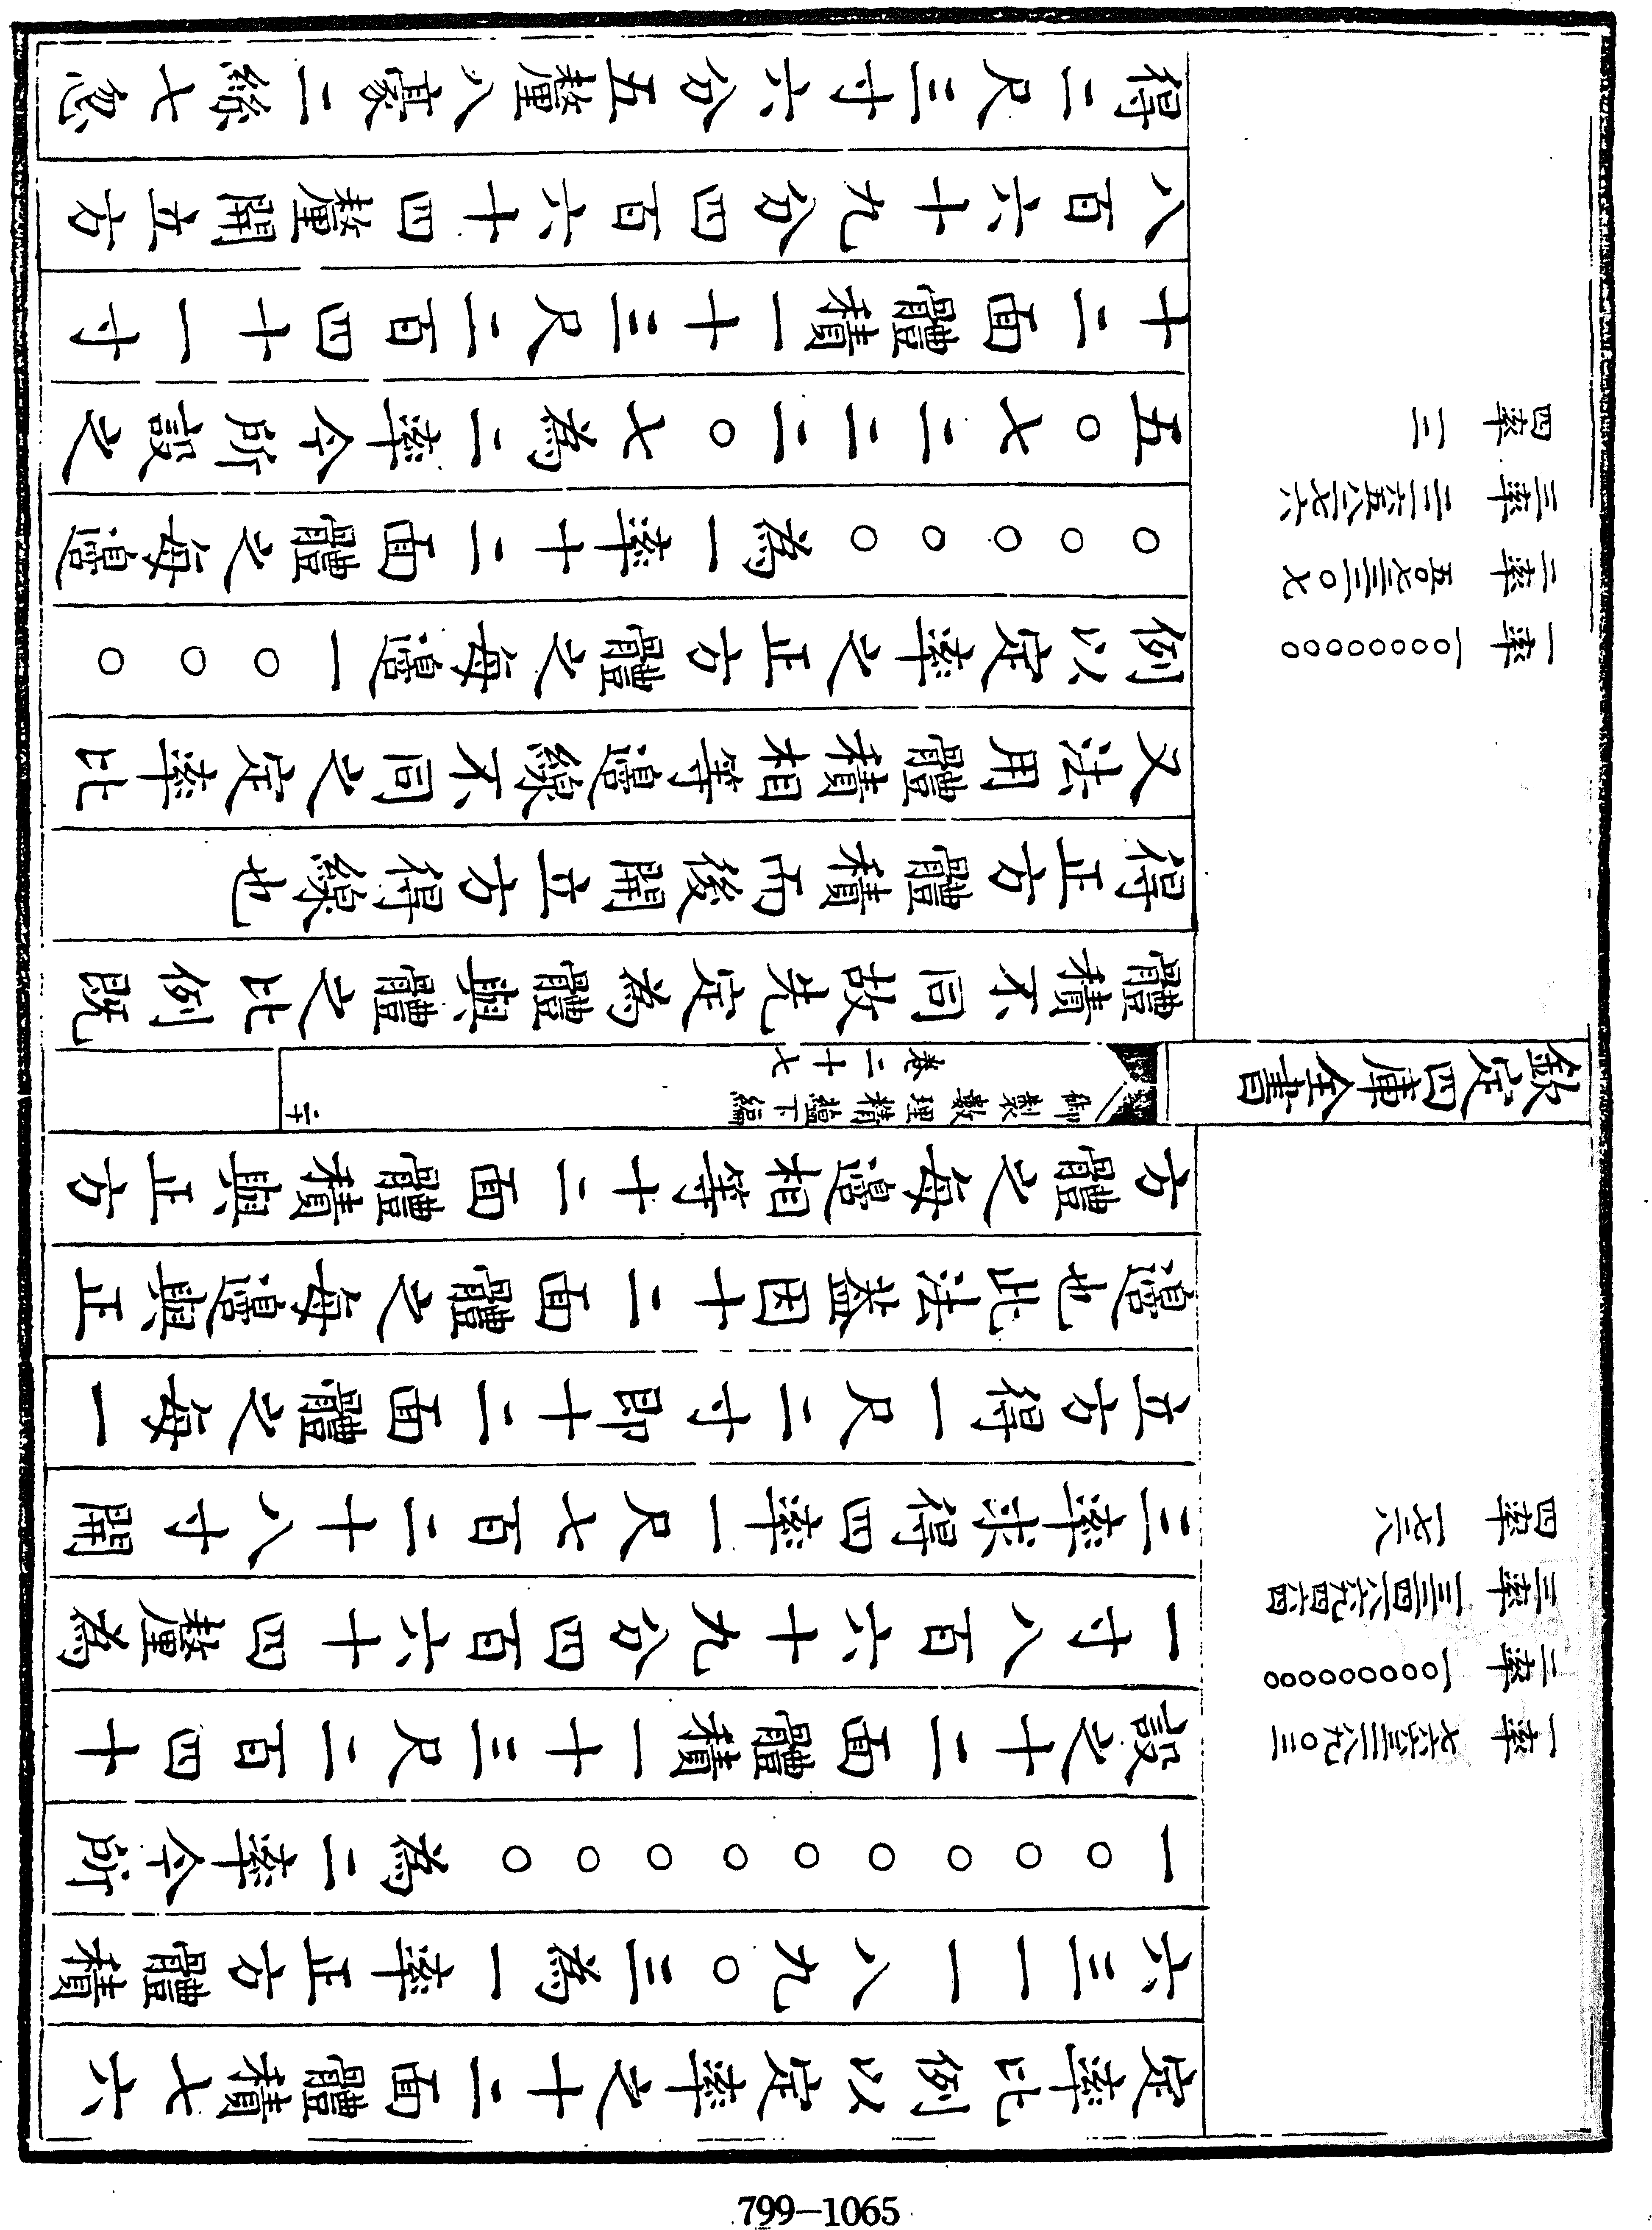 一率 七六六三一一八九〇三
二率 一〇〇〇〇〇〇〇〇〇
三率 一三二四一八六九四六四
四率 一七二八
定率比例以定率之十二面體積七六
六三一一八九〇三為一率正方體積
一〇〇〇〇〇〇〇〇〇為二率今所
設之十二面體積一十三尺二百四十
一寸八百六十九分四百六十四釐為
三率求得四率一尺七百二十八寸開
立方得一尺二寸即十二面體之每一
邊也此法葢因十二面體之每邊與正
方體之每邊相等十二面體積與正方
欽定四庫全書
御製數理精蘊下編
卷二十七
二十
體積不同故先定為體與體之比例既
得正方體積而後開立方得線也
一率 一〇〇〇〇〇〇〇〇
二率 五〇七二二二〇七
三率 二三六五八二七六
四率 一二
又法用體積相等邊線不同之定率比
例以定率之正方體之每邊一〇〇〇
〇〇〇〇〇為一率十二面體之每邊
五〇七二二二〇七為二率今所設之
十二面體積一十三尺二百四十一寸
八百六十九分四百六十四釐開立方
得二尺三寸六分五釐八毫二絲七忽
799-1065